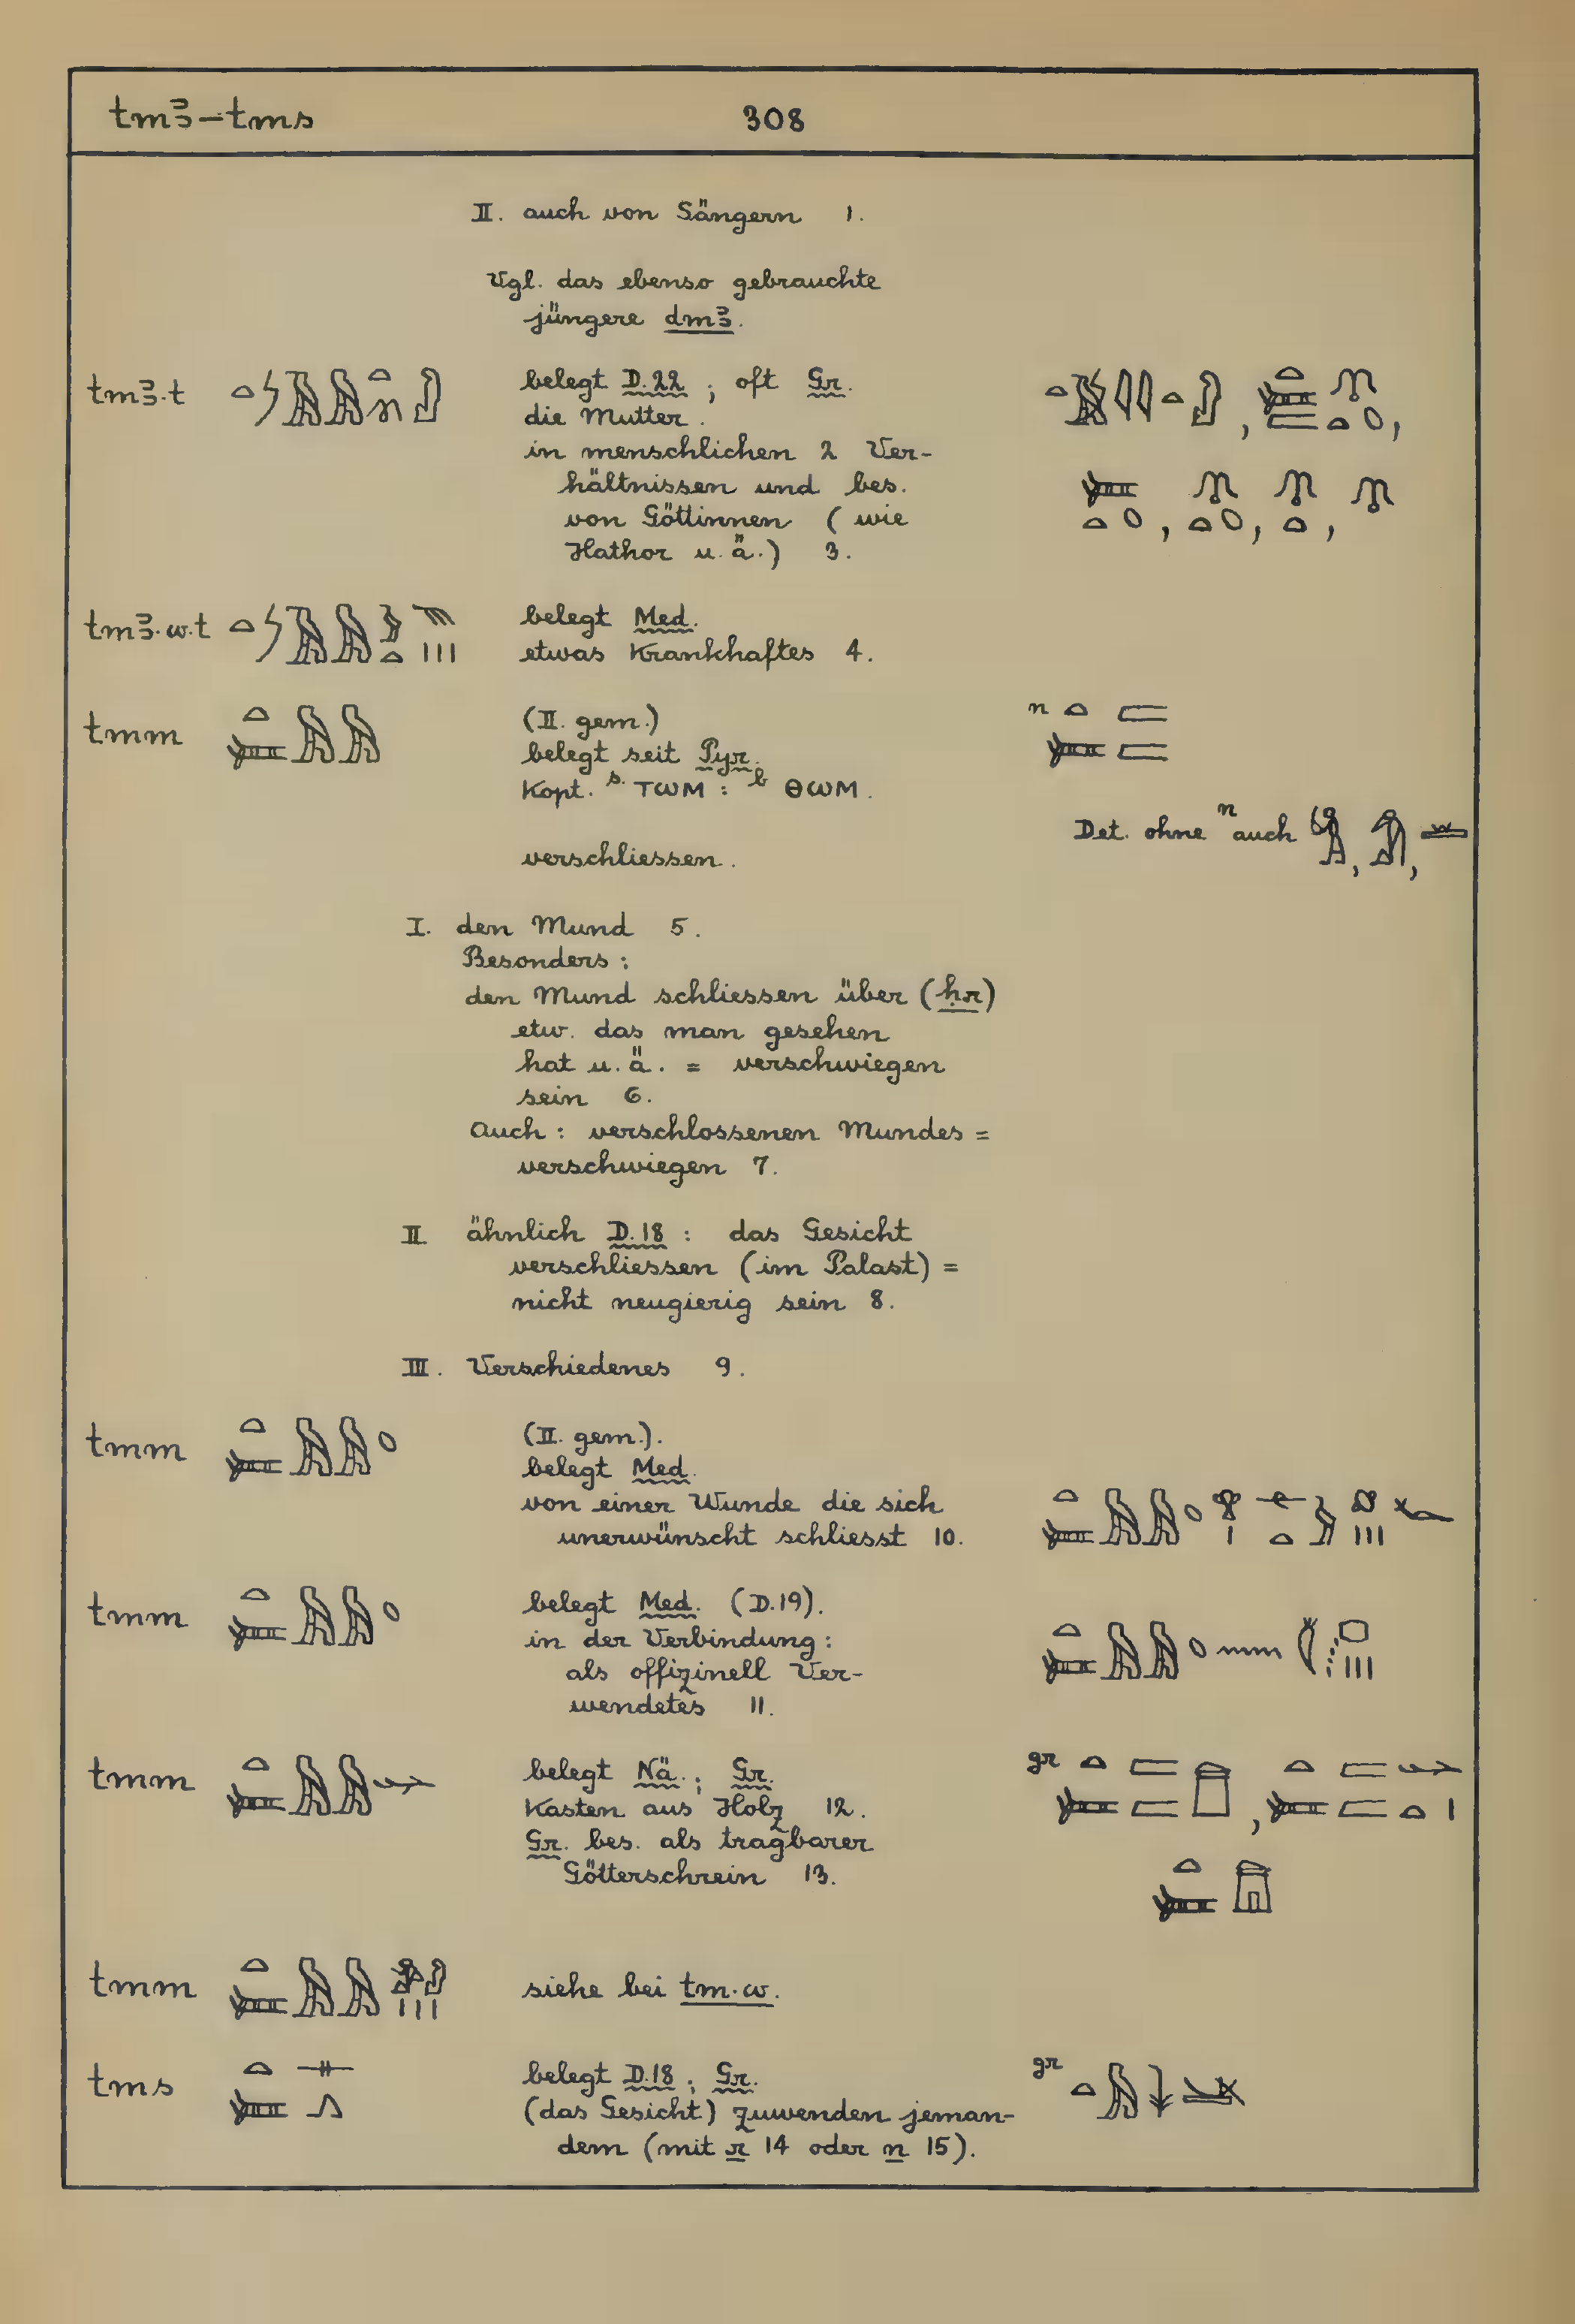 tmꜣ–tms
308
II. auch von Sängern 1.
Vgl. das ebenso gebrauchte
jüngere dmꜣ.
tmꜣ.t belegt D.22 ; oft Gr.
die Mutter.
in menschlichen 2 Ver-
hältnissen und bes.
von Göttinnen ( wie
Hathor u. ä.) 3.
tmꜣ.w.t belegt Med.
etwas Krankhaftes 4.
tmm (II. gem.) n
belegt seit Pyr.
Kopt. s. ⲧⲱⲙ : b ⲑⲱⲙ.
Det. ohne n auch
verschliessen.
I. den Mund 5.
Besonders :
den Mund schliessen über (ḥr)
etw. das man gesehen
hat u. ä. = verschwiegen
sein 6.
Auch : verschlossenen Mundes =
verschwiegen 7.
II ähnlich D.18 : das Gesicht
verschliessen (im Palast) =
nicht neugierig sein 8.
III. Verschiedenes 9.
tmm (II. gem.).
belegt Med.
von einer Wunde die sich
unerwünscht schliesst 10.
tmm belegt Med. (D.19).
in der Verbindung :
als offizinell Ver-
wendetes 11.
tmm belegt Nä. ; Gr. gr
Kasten aus Holz 12.
Gr. bes. als tragbarer
Götterschrein 13.
tmm siehe bei tm.w.
tms belegt D.18 ; Gr. gr
(das Gesicht) zuwenden jeman-
dem (mit r 14 oder n 15).